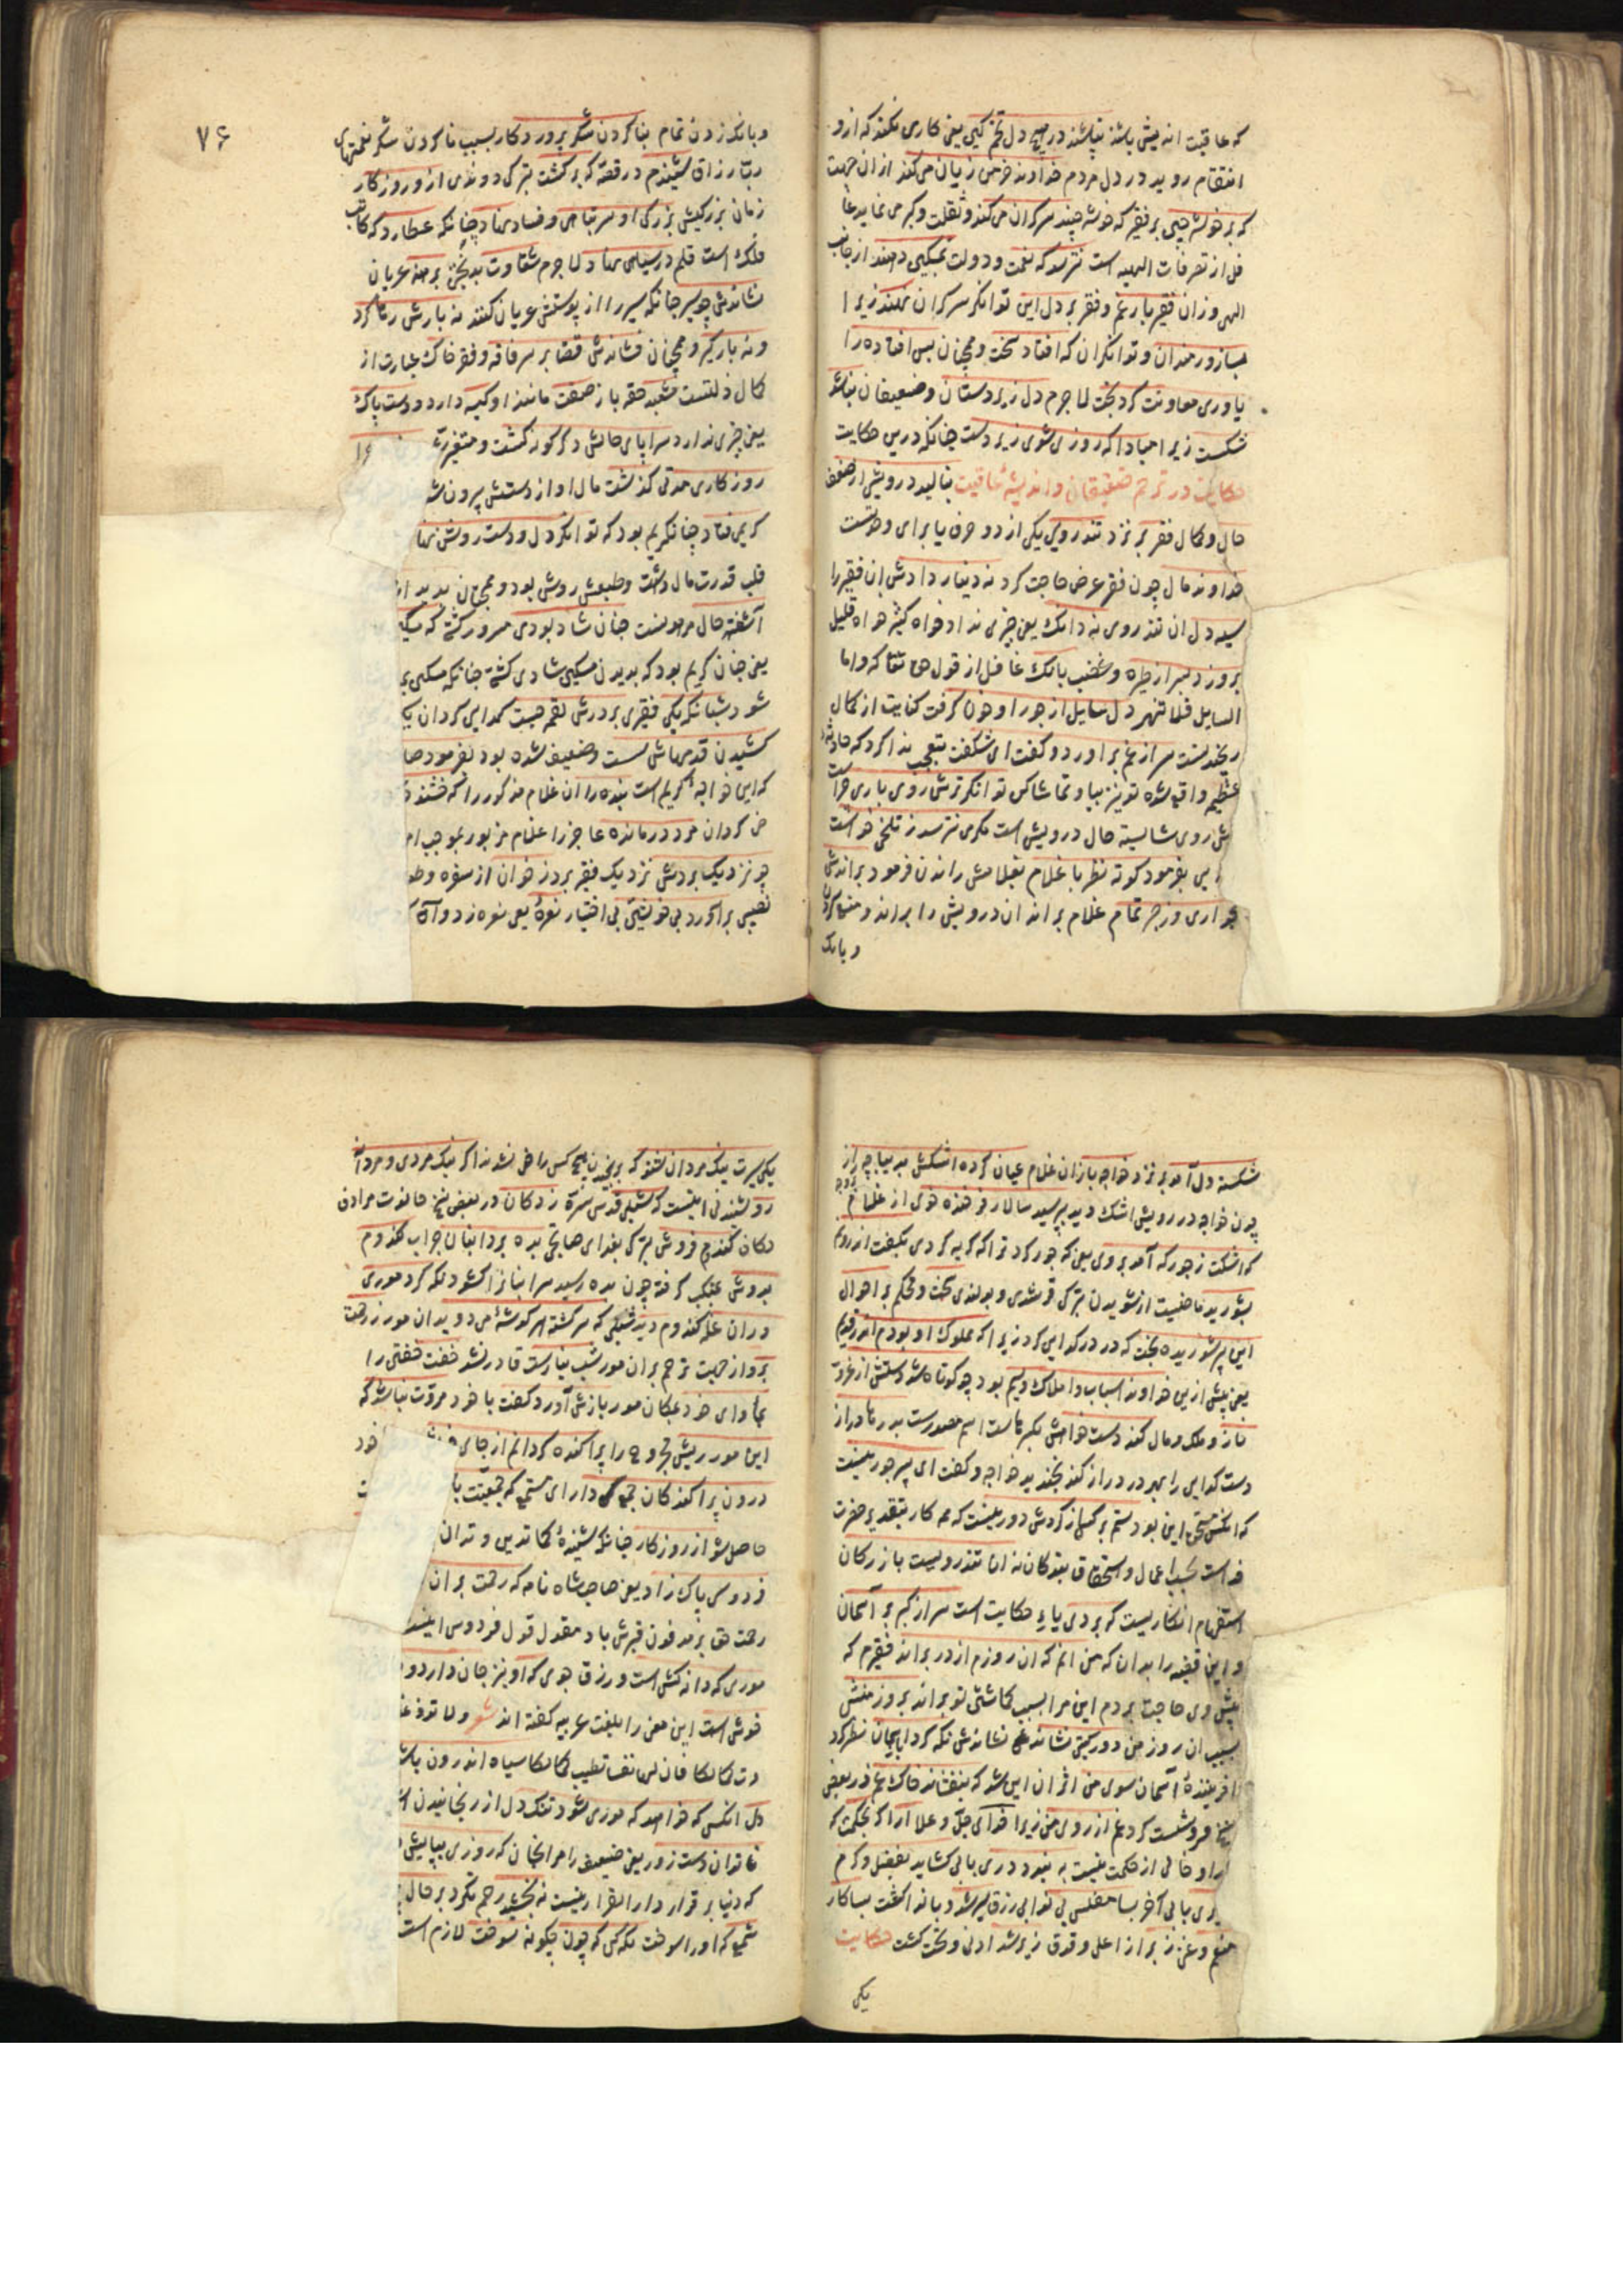 که عاقبت اندیش باشند نپاشند در هیچ دل تخم کین یعنی کاری نکنند که ازو
انتقام روید در دل مردم خداوند خرمن زیان می کند از ان جهت
که بر خوشه چین بر فقیر که خوشه چیند سر کران می کند و ثقلت و کبر می نماید غا
فل از تصرفات الهیه است نترسد که نعمت و دولت بمسکین دهند از جانب
الهی وزان فقیر بار غم و فقر بر دل این توانکر سرکران نهند زیرا
بسا زورمندان و توانکران که افتاد سخت و همچنان بس افتاده را
یاوری معاونت کرد بخت لا جرم دل زیردستان و ضعیفان نباشد
شکست زیرا مبادا که روزی شوی زیردست چنانکه درین حکایت
حکایت در ترحم ضعیفان و اندیشه عاقبت بنالید درویشی از ضعف
حال و کمال فقر بر نزد تندرویی یکی از دو حرف یا برای وحدتست
خداوند مال چون فقر عرض حاجت کرد نه دینار دادش ان فقیر را
سیه دل ان تندروی نه دانک یعنی چیزی نداد خواه کثیر خواه قلیل
بروزد بسر از طیره و غضب بانک غافل از قول حق تعا که واما
السایل فلا تنهر دل سایل از جور او خون کرفت کنایت از کمال
رنجیدنست سر از غم براورد و کفت ای شکفت بتعجب ندا کرد که حادثه
عظیم واقع شده تو نیز بیا و تماشا کن توانکر ترش روی باری چراست
ش روی شایسته حال درویش است مکر می نترسد ز تلخی خواست
بفرمود کوته نظر با غلام بغلامش راندن فرمود براندش
بخواری و زجر تمام غلام براند ان درویش را براند و منع کردن
و بانک
۷۶
و بانک زدن تمام بنا کردن شکر پروردکار بسبب نا کردن شکر نعمتهای
رب رزاق شنیدم در قصه که بر کشت بترکی دوندی ازو روزکار
زمان بزرکیش بزرکی او سر تباهی و فساد نهاد چنانکه عطارد که کاتب
فلک است قلم در سیاهی نهاد لا جرم شقاوت بدبختی برهنه عریان
نشاندش چو سیر چنانکه سیر را از پوستش عریان کنند نه بارش رها کرد
و نه بارکیر و همچنان فشاندش قضا بر سر فاقه و فقر خاک عبارت از
کمال ذلتست مشعبد حقه باز صفت مانند او کیسه دارد و دست پاک
یعنی چیزی ندارد سراپای حالش دکرکونه کشت و متغیر
روزکاری مدتی کذشت مال او از دستش بیرون شد
کریمی فتاد چنانکریم بود که توانکر دل و دست روشن نهاد
قلب قدرت مال داشت و طبعش روشن بود و همچنان بدیدار
آشفته حال مرهونست چنان شاد بودی مسرور کشتی که مسکین
یعنی چنان کریم بود که بدیدن مسکین شادی کشتی چنانکه مسکین بم
شود شبانکه یکی فقیری بر درش لقمه جست کدایی کرد ان یک
کشیدن قدمهاش سست و ضعیف شده بود بفرمود صا
که این خواجه کریم است بنده را ان غلام مذکور را که خشنود
خی کردان مرد درمانده عاجز را غلام مزبور بموجب ام
چو نزدیک بردش نزدیک فقیر برد ز خوان از سفره وطعا
نصیبی براورد بی خویشتن بی اختیار نعره یعنی نعره زد و آن
شکسته دل آمد بر نزد خواجه باز ان غلام عیان کرده اشکش بدیباچه راز
چون خواجه در رویش اشک دید بپرسید سالار فرخنده خوی از غلام
که اشکت ز جور که آمد بروی یعنی که جور کرد ترا که کریه کردی بکفت اندرونم
بشورید ماضیست از شوریدن بترکی قومشدی و بولندی سخت و محکم بر احوال
این پیر شوریده بخت که در درکدایی کرد زیرا که مملوک او بودم اندر قدیم
یعنی پیش ازین خداوند اسباب و املاک و سیم بود چو کوتاه شد دستش از عز و
ناز و ملک و مال کند دست خواهش بکبرهاست اسم مصدرست بدرها دراز
دست کدایی را بهر در دراز کند بخندید خواجه و کفت ای پسر جور نیست
که انکس مستحق این بود ستم بر کس از کردش دور نیست که همه کار بتقدیر حضرت
خداست بحسب اعمال و استحقاق بندکان نه ان تندرویست بازرکان
استفهام انکاریست که بردی یاء حکایت است سر از کبر بر آسمان
و این قضیه را بدان که من انم که ان روزم از در براند فقیرم که
پیش وی حاجت بردم این مرا بسبب کماشتی تو براند بروز منش
بسبب ان روز من دور کیتی نشاند غ نشاندش نکه کرد ایچنان نظر کرد
افریننده آسمان سوی من اثر ان این شد که بنفشاند خاک غم در بعض
نسخ فروشست کرد غم از روی من زیرا خدای جل و علا ارا که بحکمت که
راو خالی از حکمت نیست به بندد دری بابی کشاید بفضل و کرم
دری بابی آخر بسا مفلس بی نوا بی رزق سیر شد و با نوا کشت بسا کار
منعم و عزیز زبر از اعلی و فوق زیر شد ادنی و تحت کشت حکایت
یکی
یکی سیرت نیک مردان شنو که برنجیدن هیچ کس راضی نشدند اکر نیک مردی و مردانه
رو شنیدن اینست که شبلی قدس سره ز دکان در بعض نسخ حانوت مرادف
دکان کندم فروش بترکی بغدای صاتجی بده برد انبان جراب کندم
بدوش بمنکب کرفته چون بده رسید سر انبانرا کشود نکه کرد موری
در ان غله کندم دید شبلی که سرکشته هر کوشه می دوید ان مور ز رحمت
برو از جهت ترحم بر ان مور شب نیارست قادر نشد خفت خفتن را
بماوای خود بمکان مور بازش آورد و کفت با خود مروت نباشد که
این مور ریش مجروح را پراکنده کردانم از جای خود
درون پراکندکان جمع دارای سمی که جمعیت با
حاصل شد از روزکار چنانکه شنیده کما تدین و تدان
فردوسی پاک زاد یعنی صاحب شاه نامه که رحمت بر ان
رحمت حق بر مدفون قبرش باد مقول قول فردوسی اینست
موری که دانه کش است و رزق جوی که او نیز جان دارد و
خوش است این معنی را بلغت عربیه کفته اند شعر و لا توذ غد
وت لمالکا فان لها نفسا تطیب کمالکا سیاه اندرون باشد
دل انکس که خواهد که موری شود تنک دل از رنجانیدن ان
ناتوان دست زور یعنی ضعیف را مرنجان که روزی بپایش
که دنیا بر قرار دار القرار نیست نه بخشید رحم نکرد بر حال
شمع که او را سوخت نکه کن که چون چکونه سوخت لازم است